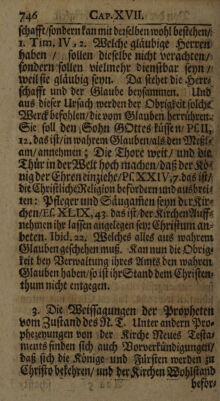 746 CAP. XVII.
schafft / sondern kan mit derselben wohl bestehen /
1. Tim. IV, 2. Welche gläubige Herren
haben / sollen dieselbe nicht verachten /
sondern sollen vielmehr dienstbar seyn /
weil sie gläubig seyn. Da stehet die Herr-
schafft und der Glaube beysammen. Und
aus dieser Ursach werden der Obrigkeit solche
Werck befohlen / die vom Glauben herrühren.
Sie soll den Sohn GOttes küssen / Ps. II,
12, das ist / in wahrem Glauben / als den Meßi-
am / annehmen; Die Thore weit / und die
Thür in der Welt hoch machen / daß der Kö-
nig der Ehren einziehe / Ps. XXIV, 7. das ist /
die Christliche Religion befördern und ausbrei-
ten: Pfleger und Säugam̃en seyn der Kir-
chen / Es. XLIX, 43. das ist / der Kirchen Auff-
nehmen ihr lassen angelegen seyn: Christum an-
beten. Ibid. 22. Welches alles aus wahrem
Glauben geschehen muß. Kan nun die Obrig-
keit bey Verwaltung ihres Amts den wahren
Glauben haben / so ist ihr Stand dem Christen-
thum nicht entgegen.
3. Die Weissagungen der Propheten
vom Zustand des N. T. Unter andern Pro-
phezeyungen von der Kirche Neues Testa-
ments finden sich auch Vorverkündigungen /
daß sich die Könige und Fürsten werden zu
Christo bekehren / und der Kirchen Wohlstand
beför-